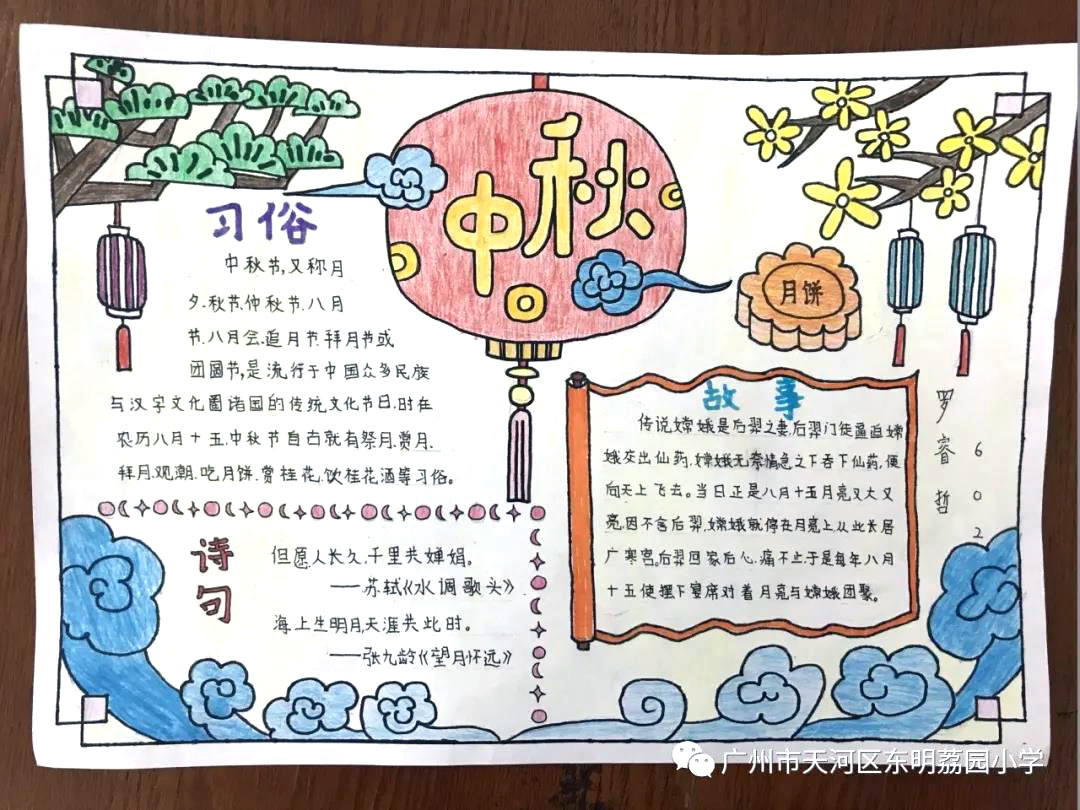 中秋
习俗
中秋节,又称月
夕.秋节.仲秋节.八月
节.八月会.追月节.拜月节或
团圆节,是流行于中国众多民族
与汉字文化圈诸国的传统文化节日.时在
农历八月十五.中秋节自古就有祭月.赏月.
拜月.观潮.吃月饼.赏桂花.饮桂花酒等习俗。
诗句
但愿人长久.千里共婵娟。
——苏轼《水调歌头》
海上生明月,天涯共此时。
——张九龄《望月怀远》
月饼
故事
传说嫦娥是后羿之妻.后羿门徒逼迫嫦
娥交出仙药.嫦娥无奈情急之下吞下仙药,便
向天上飞去。当日正是八月十五月亮又大又
亮.因不舍后羿.嫦娥就停在月亮上从此长居
广寒宫。后羿回家后心痛不止于是每年八月
十五便摆下宴席对着月亮与嫦娥团聚。
罗睿哲
602
广州市天河区东明荔园小学